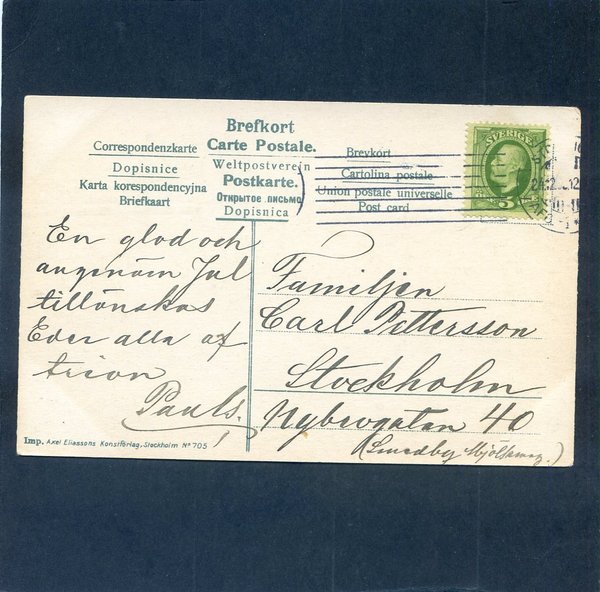 Brefkort
Carte Postale.
Correspondenzkarte
Weltpostverein
Brevkort
Dopisnice
Postkarte.
Cartolina postale
Karta korespondencyjna
Открытое письмо
Union postale universelle
Briefkaart
Dopisnica
Post card
SVERIGE
5
En glad och
angenäm Jul
tillönskas
Eder alla af
Pauls.
Familjen
Carl Pettersson
Stockholm
Nybrogatan 40
(Smedby
Imp. Axel Eliassons Konstförlag, Stockholm Nº 705